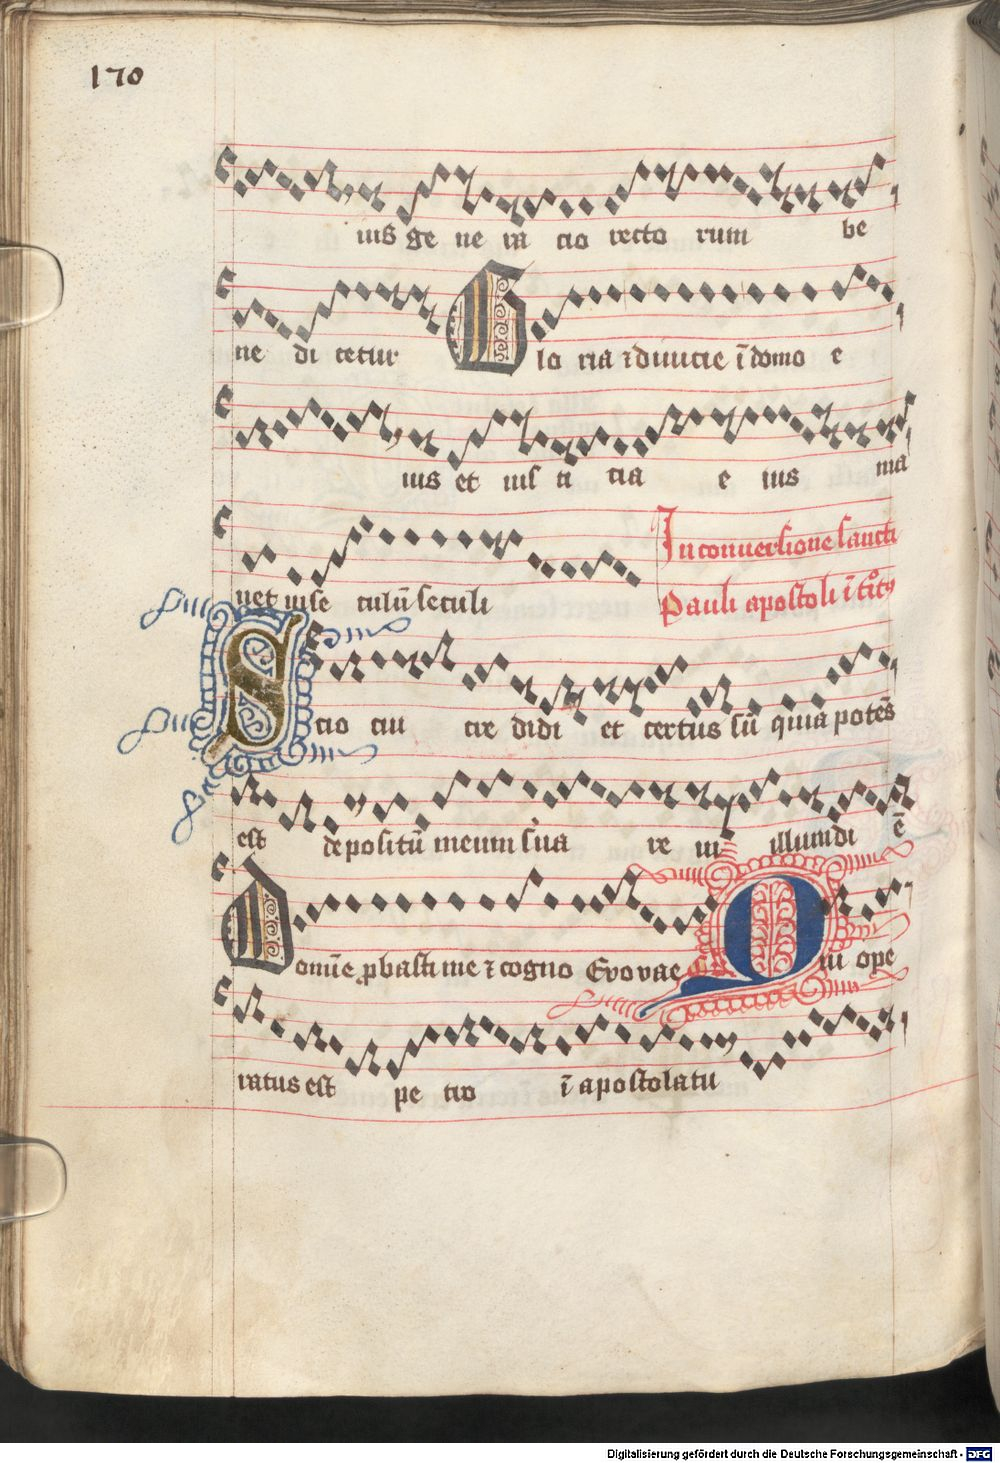 170
ius ge ne ra cio recto rum be
ne di cetur G lo ria ⁊ diuicie ī domo e
ius et iusti cia e ius ma
net in se culū seculi In conuersione sancti
Pauli apostoli ītroitꝰ
S cio cui cre didi et certus sū quia potēs
est depositū meum s'ua re in illum di ē
D omīe ꝓbasti me ⁊ cogno Evovae Q ui ope
ratus est pe tro ī apostolatu
Digitalisierung gefördert durch die Deutsche Forschungsgemeinschaft - DFG